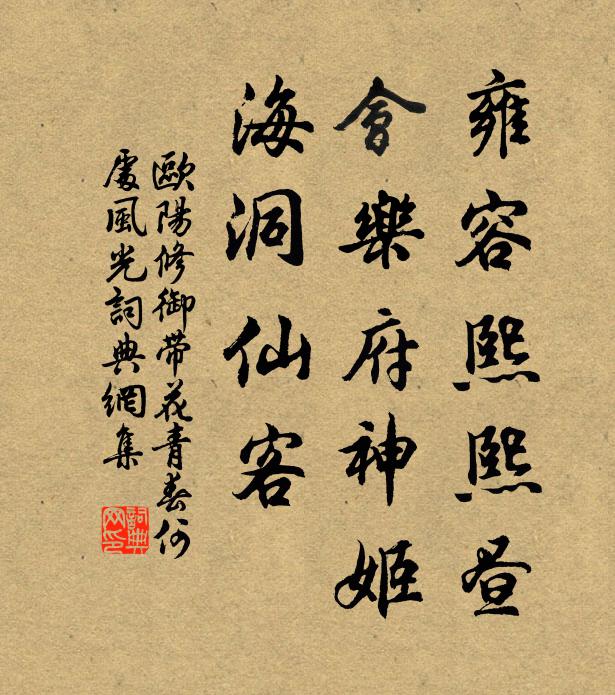 雍容熙熙昼
會樂府神姬
海洞仙客
歐陽修御带花青春何
處風光詞典網集
詞典
网印